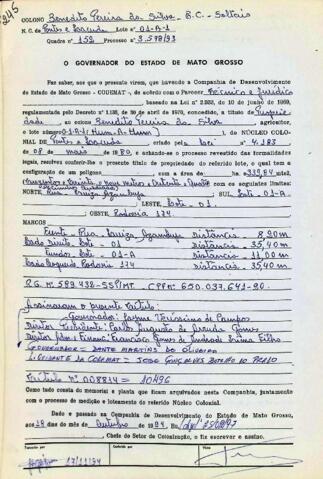 COLONO Benedito Pereira da Silva - B.C. - Solteiro
N.C. de Pontes e Lacerda Lote nº 01-A-1
Quadra nº 152 Processo nº 3.578/93
O GOVERNADOR DO ESTADO DE MATO GROSSO
Faz saber, aos que o presente virem, que havendo a Companhia de Desenvolvimento
do Estado de Mato Grosso - CODEMAT -, de acordo com o Parecer Técnico e Jurídico
baseado na Lei nº 2.933, de 10 de junho de 1969,
regulamentada pelo Decreto nº 1.138, de 30 de abril de 1970, concedido, a título de Proprie
dade ao colono Benedito Pereira da Silva agricultor,
o lote número 01-A-1 (Hum-A-Hum) do NÚCLEO COLO-
NIAL DE Pontes e Lacerda criado pela Lei nº 4.183
de 08 de maio de 1980, e achando-se o processo revestido das formalidades
legais, resolveu conferir-lhe o presente título de propriedade do referido lote, o qual tem a
configuração de um polígono com a área de ha. 339,84 mts,
com os seguintes limites:
NORTE SUL Lote 01-A
LESTE Lote 01
OESTE, Rodovia 174
MARCOS
Frente Rua Distância 8,20m
Lado Direito Lote 01 Distância 35,40m
Fundos Lote 01-A Distância 11,00m
Lado Esquerdo Rodovia 174 Distância 35,40m
R.G. Nº 589.432-SSP/MT. CPF Nº 650.037.641-20.
Assinaram o presente Título:
Governador: Jayme Veríssimo de Campos
Diretor Presidente: Carlos Augusto de Arruda Gomes
Diretor Adm. Financ. Francisco Gomes de Andrade Lima Filho
GOVERNADOR - DANTE MARTINS DE OLIVEIRA
LIQUIDANTE DA CODEMAT - JOSÉ GONÇALVES BOTELHO DO PRADO
Título nº 008814 = 10496
Como tudo consta do memorial e planta que ficam arquivados nesta Companhia, juntamente
com o processo de medição e loteamento do referido Núcleo Colonial.
Dado e passado na Companhia de Desenvolvimento do Estado de Mato Grosso,
aos 18 dia do mês de Outubro de 1994.
Chefe do Setor de Colonização, o fiz escrever e assino.
17/11/94
VISTO